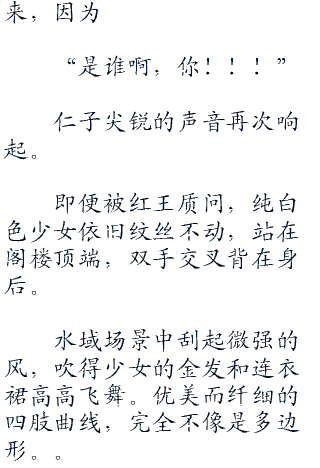 来，因为
“是谁啊，你！！！”
仁子尖锐的声音再次响
起。
即便被红王质问，纯白
色少女依旧纹丝不动，站在
阁楼顶端，双手交叉背在身
后。
水域场景中刮起微强的
风，吹得少女的金发和连衣
裙高高飞舞。优美而纤细的
四肢曲线，完全不像是多边
形。。